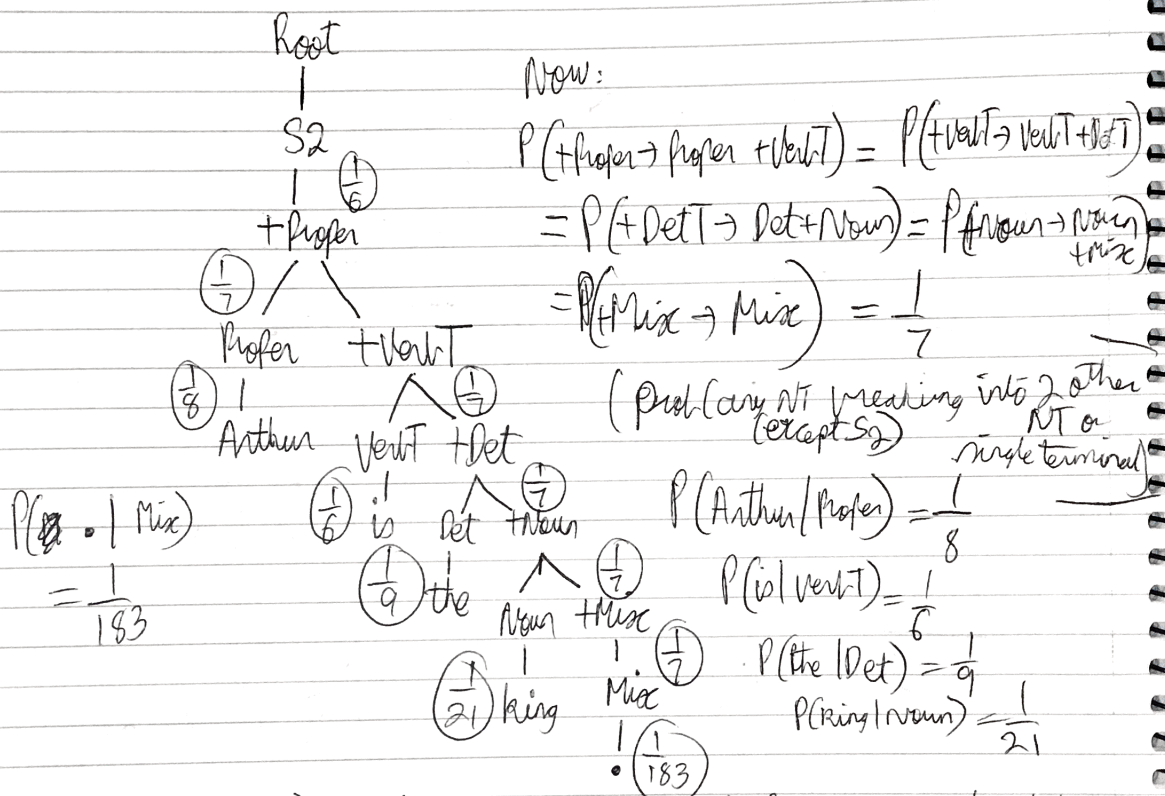 Root
S2
1/6
+Proper
1/7
Proper +VerbT
1/8
1/7
Arthur VerbT +Det
1/6 is
Det +Noun
1/7
1/9 the
Noun +Mix
1/7
1/21 king
Mix
1/7
. 1/183
P( . | Mix)
= 1/183
Now:
P(+Proper → Proper +VerbT) = P(+VerbT → VerbT +DetT)
= P(+DetT → Det+Noun) = P(+Noun → Noun
+Mix)
= P(+Mix → Mix) = 1/7
(prob (any NT breaking into 2 other
(except S2) NT or
single terminal)
P(Arthur/Proper) = 1/8
P(is|verbT) = 1/6
P(the|Det) = 1/9
P(king|noun) = 1/21